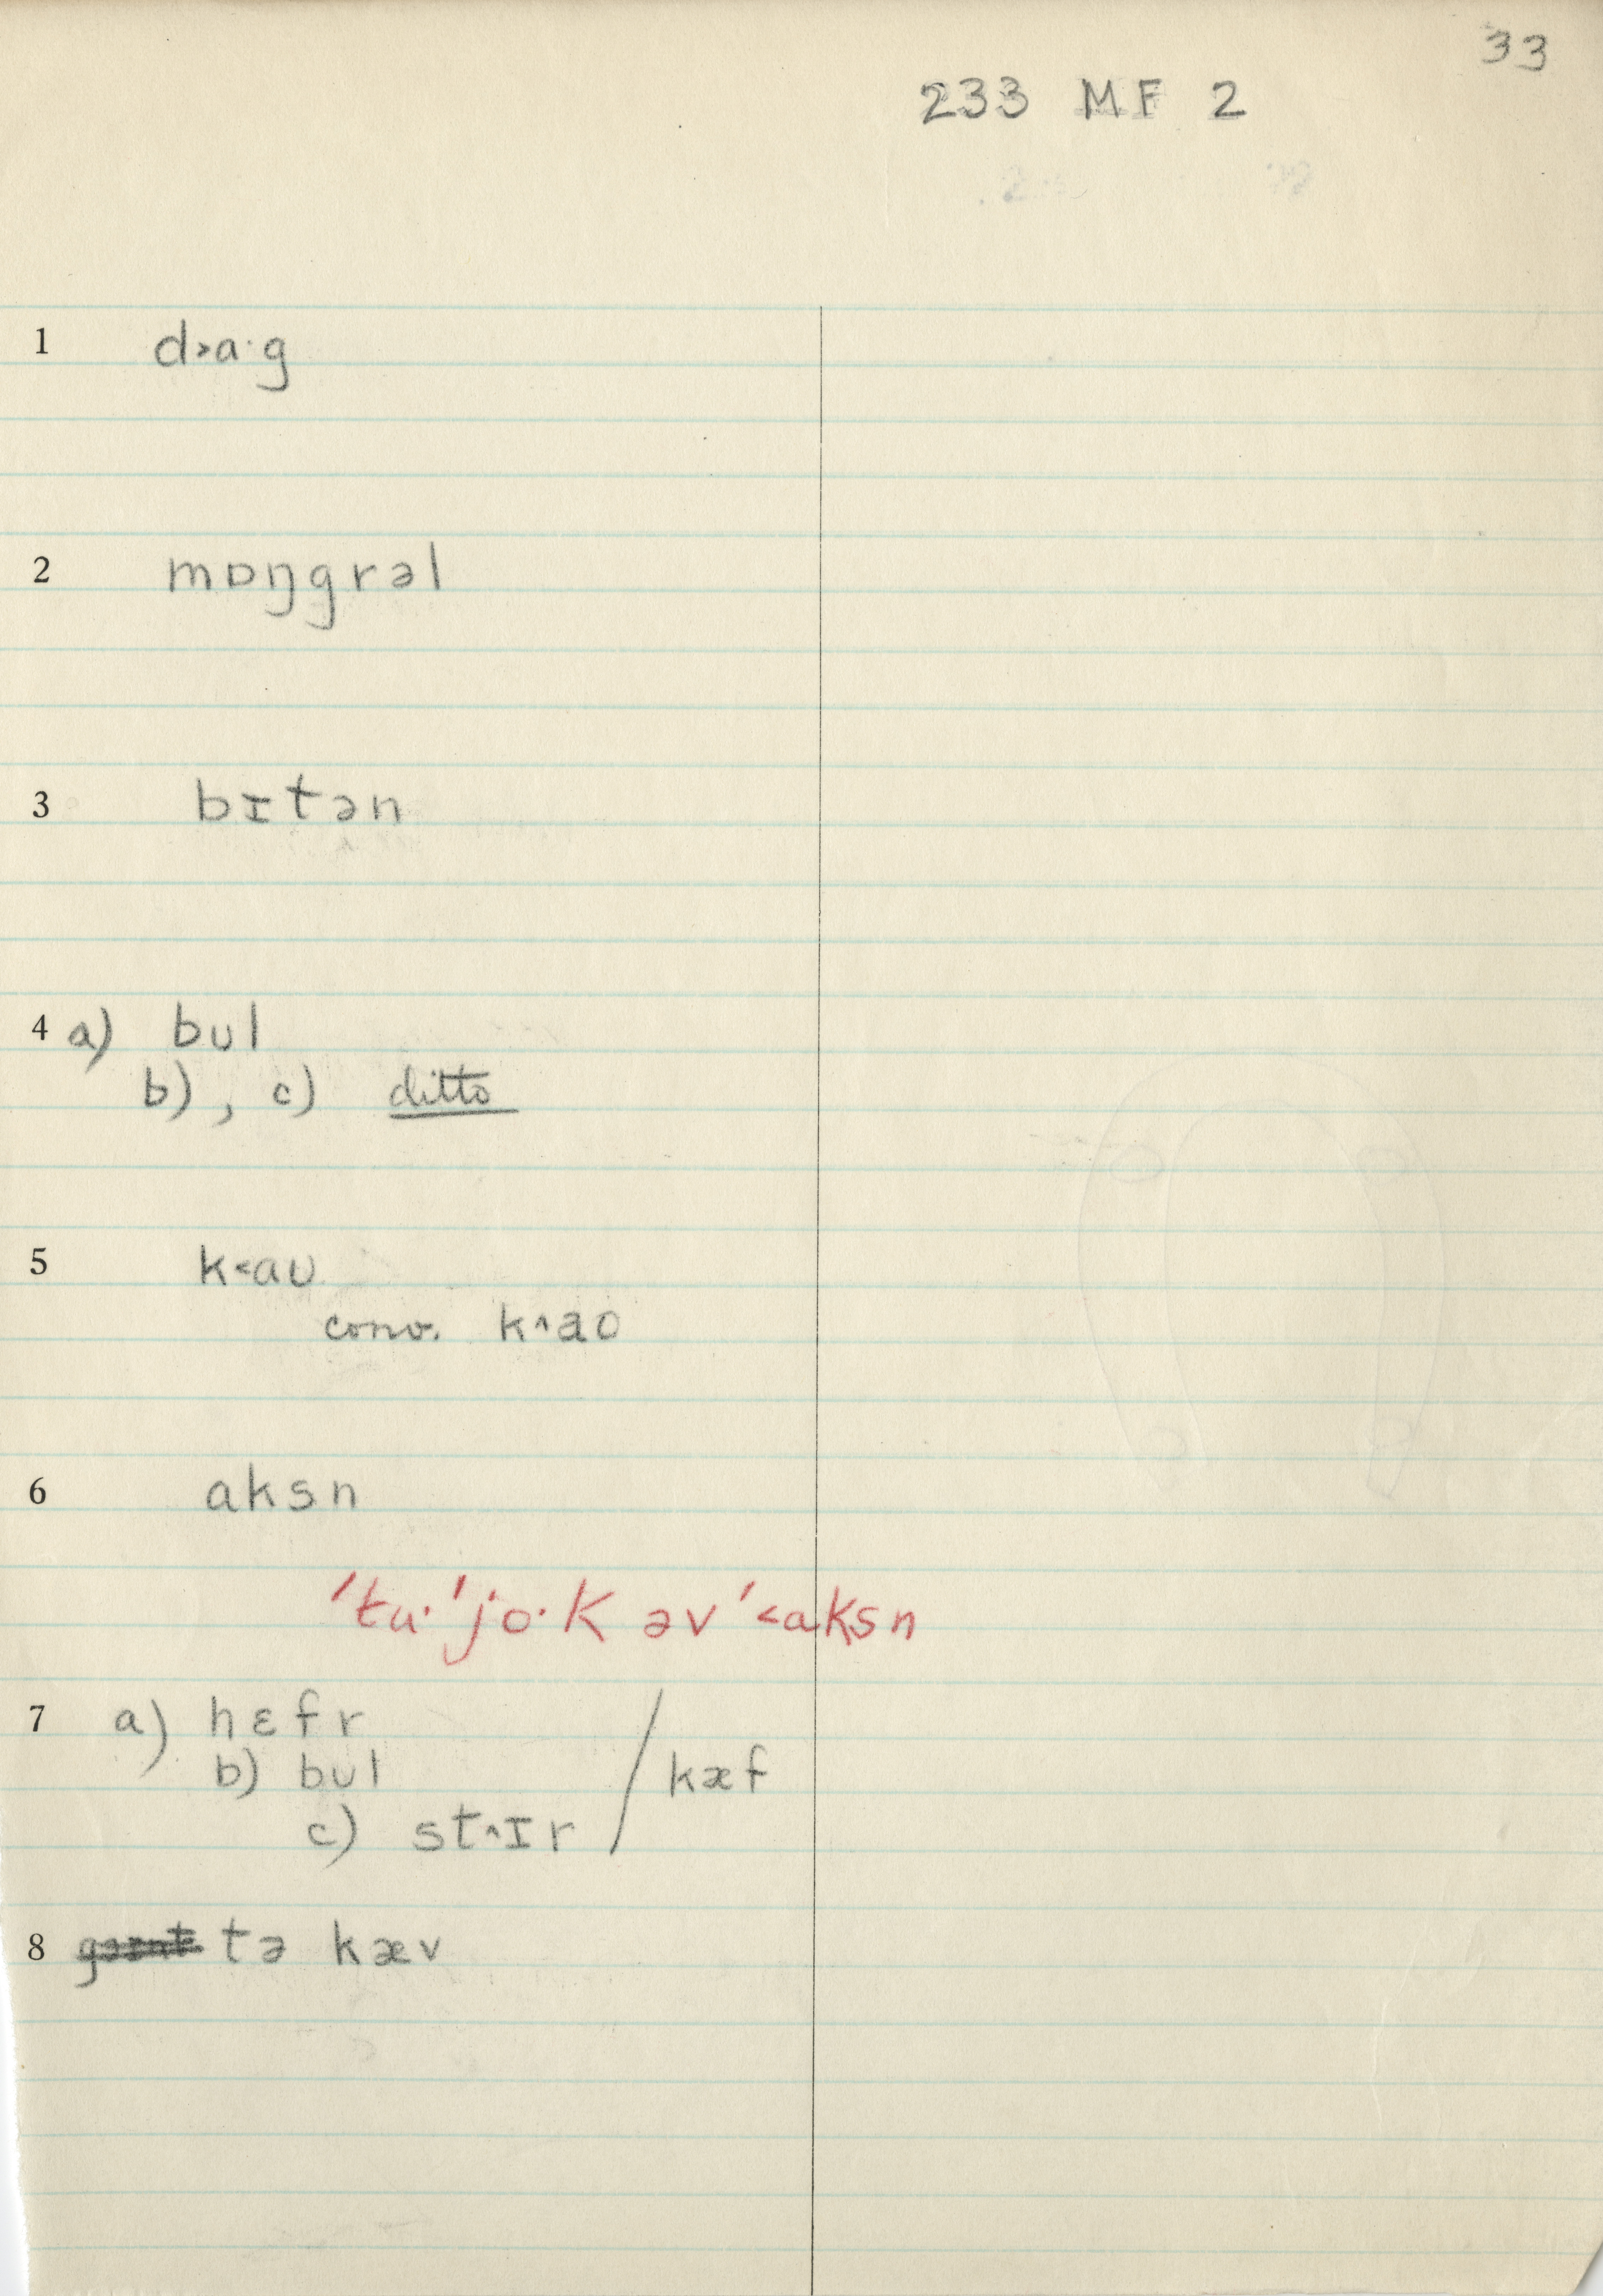 33
233 MF 2
1 d˃a·g
2 mɒŋgrəl
3 bɪtən
4 a) bʊl
b), c) ditto
5 k˂aʊ
conv. k˄ao
6 aksn
'tu·'jo·k əv '˂aksn
7 a) hɛfr
b) bʊl / kæf
c) st˄ɪr
8 tə kæv